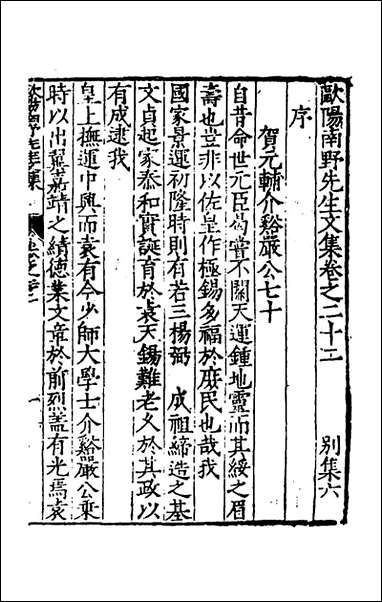 歐陽南野先生文集卷之二十二 別集六
序
賀元輔介谿嚴公七十
自昔命世元臣曷嘗不關天運鍾地靈而其綏之眉
壽也豈非以佐皇作極錫多福於庶民也哉我
國家景運初隆時則有若三楊弼 成祖締造之基
文貞起家泰和實誕育於袁天錫難老久於其政以
有成逮我
皇上撫運中興而袁有今少師大學士介谿嚴公乗
時以出贊嘉靖之績德業文章於前烈蓋有光焉袁